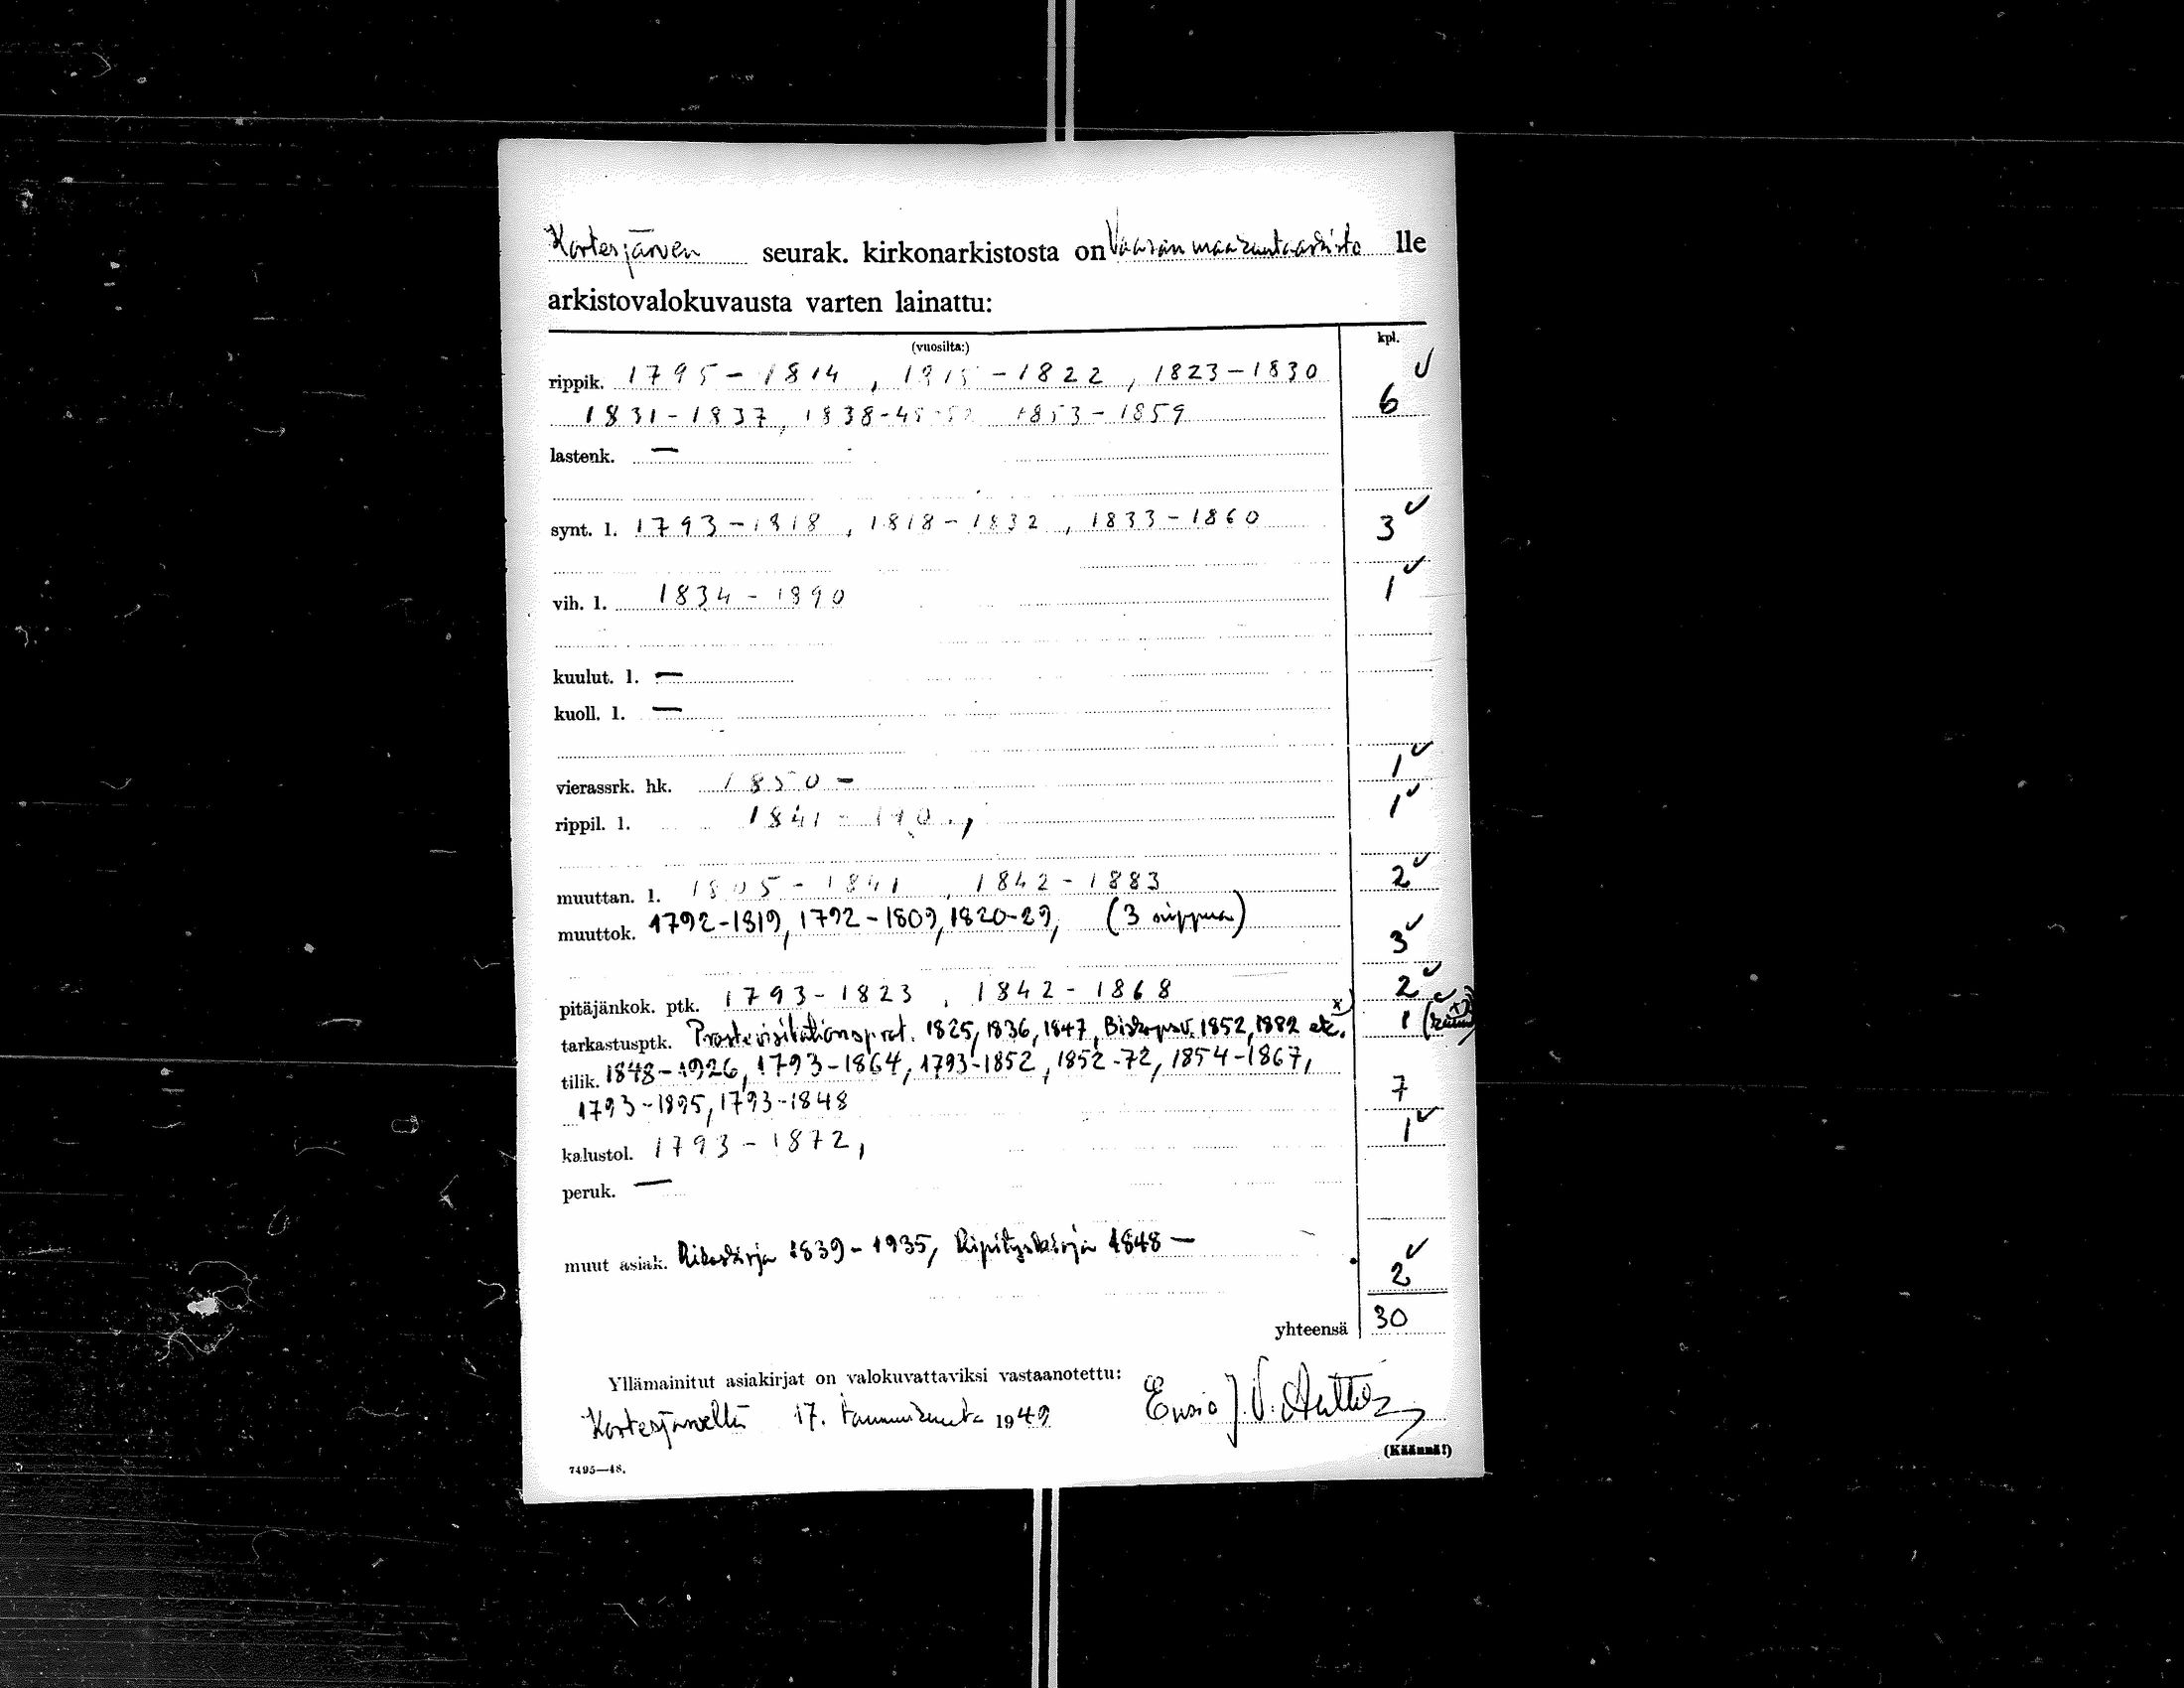 Kortesjärven seurak. kirkonarkistosta on Vaasan maakunta-arkisto lle
arkistovalokuvausta varten lainattu:
(vuosilta:) kpl.
rippik. 1795-1814, 1815-1822, 1823-1830 ✓
1831-1837, 1838-45-52 1853-1859 6
lastenk. —
synt. l. 1793-1818, 1818-1832, 1833-1860 3 ✓
vih. l. 1834-1890 1 ✓
kuulut. l. —
kuoll. l. —
vierassrk. hk. 1850 - 1 ✓
rippil. l. 1841 - 1 ✓
muuttan. l. 1805-1841, 1842-1883 2 ✓
muuttok. 1792-1819, 1792-1809, 1820-29, (3 nippua) 3 ✓
pitäjänkok. ptk. 1793-1823, 1842-1868 2 ✓
tarkastusptk. Prostevisitationsprot. 1825, 1836, 1847, Biskopsv. 1852, 1882 etc. x) 1
tilik. 1848-1926, 1793-1864, 1793-1852, 1852-72, 1854-1867,
1793-1895, 1793-1848 7
kalustol. 1793-1872, 1 ✓
peruk. —
muut asiak. Rikoskirja 1839-1935, Ripityskirja 1848 — 2 ✓
yhteensä 30
Yllämainitut asiakirjat on valokuvattaviksi vastaanotettu:
Kortesjärvellä 17. tammikuuta 1949 Ensio J. V.
(Käännä!)
7495—48.